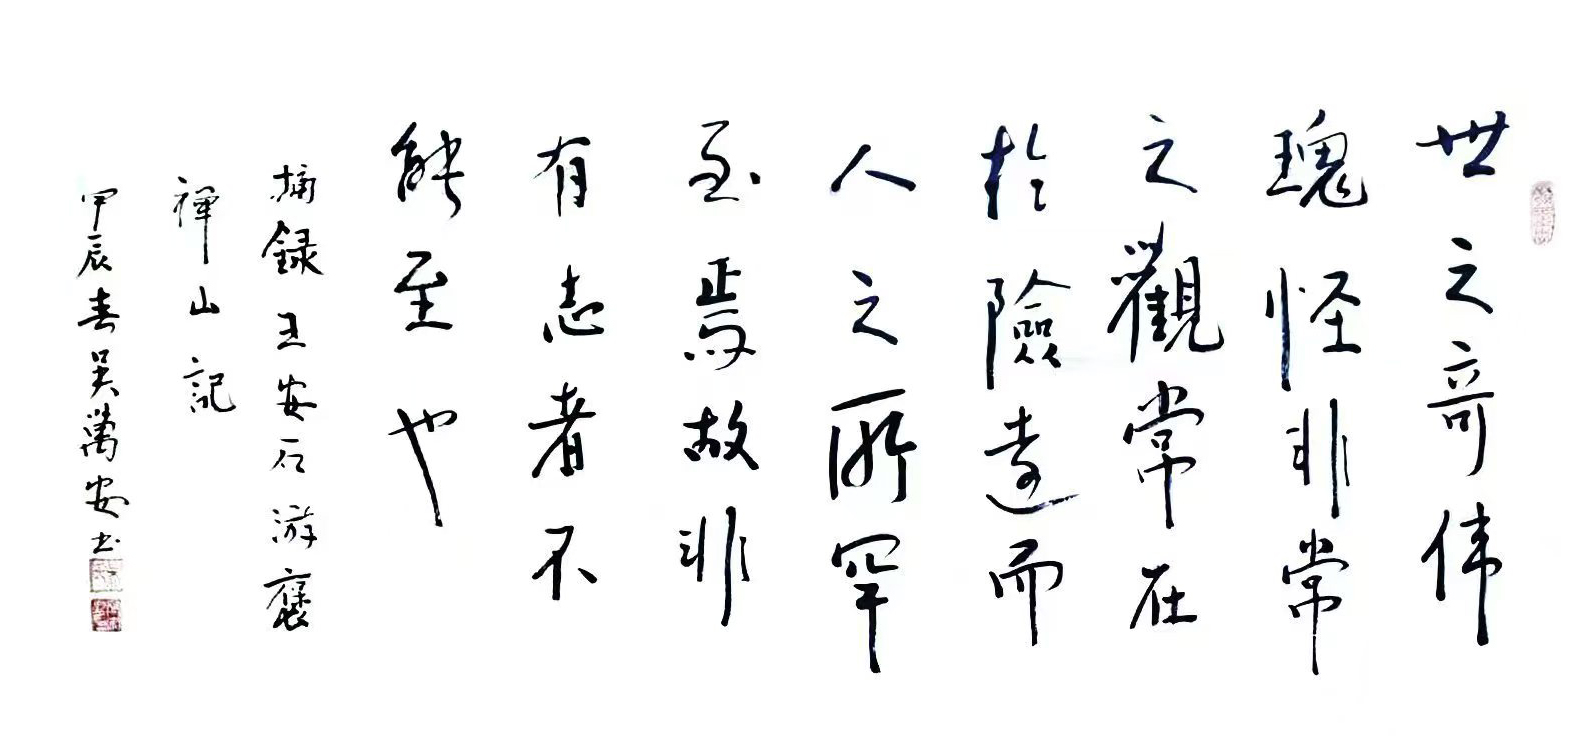 世之奇偉
瑰怪非常
之觀常在
於險遠而
人之所罕
至焉故非
有志者不
能至也
摘録王安石游褒
禅山記
甲辰春吴萬安书